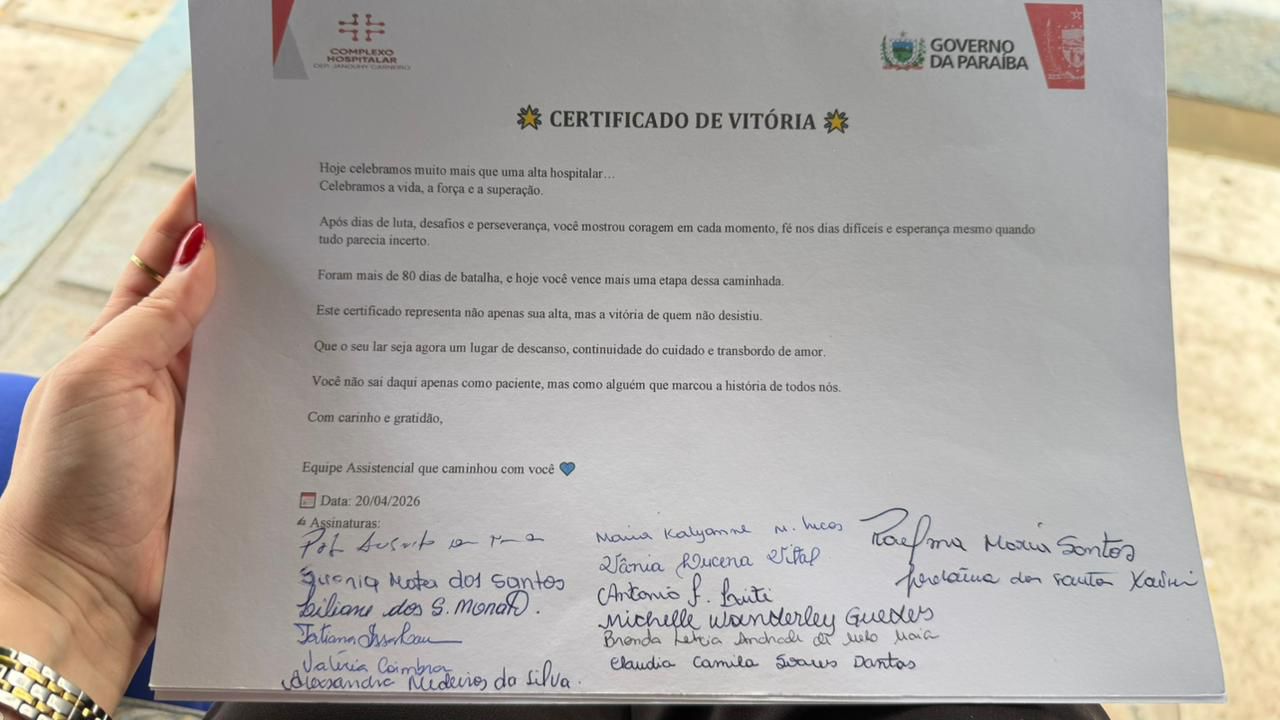 COMPLEXO
HOSPITALAR
DEP. JANDUHY CARNEIRO
GOVERNO
DA PARAÍBA
CERTIFICADO DE VITÓRIA
Hoje celebramos muito mais que uma alta hospitalar…
Celebramos a vida, a força e a superação.
Após dias de luta, desafios e perseverança, você mostrou coragem em cada momento, fé nos dias difíceis e esperança mesmo quando
tudo parecia incerto.
Foram mais de 80 dias de batalha, e hoje você vence mais uma etapa dessa caminhada.
Este certificado representa não apenas sua alta, mas a vitória de quem não desistiu.
Que o seu lar seja agora um lugar de descanso, continuidade do cuidado e transbordo de amor.
Você não sai daqui apenas como paciente, mas como alguém que marcou a história de todos nós.
Com carinho e gratidão,
Equipe Assistencial que caminhou com você 💙
Data: 20/04/2026
Assinaturas:
dos Santos
Liliane dos S.
Tatiana
Valéria Coimbra
Alexsandra Medeiros da Silva.
Maria Kalyanne M. Lucas
Vânia Lucena Vital
Antonio F.
Michelle Wanderley Guedes
Brenda Letícia Andrade de Melo Maia
Claudia Camila Soares Dantas
Maria Santos
dos Santos